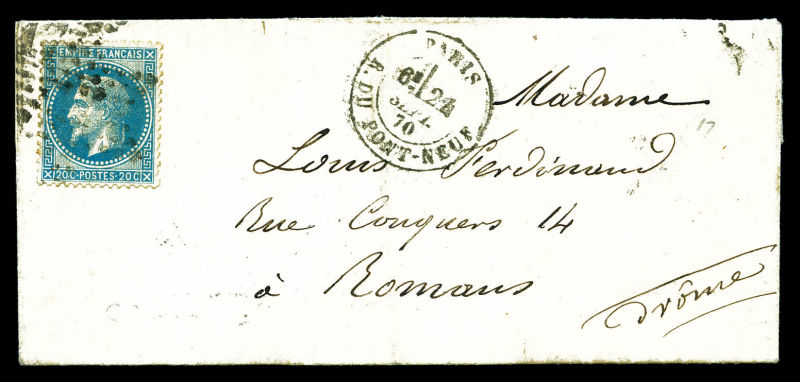 EMPIRE FRANÇAIS
20C·POSTES·20C
PARIS
6E 24
SEPT.
70
R. DU PONT-NEUF
Madame
Louis Ferdinand
Rue Conquers 14
à Romans
Drôme